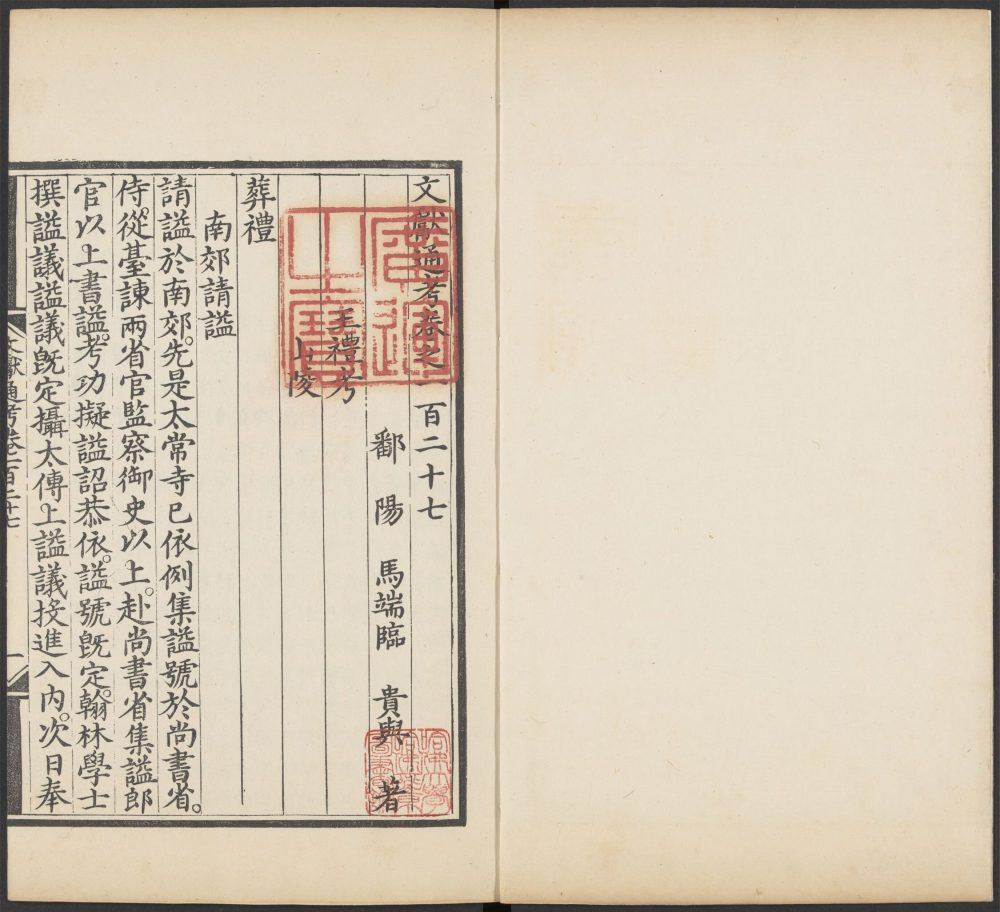 文獻通考卷之一百二十七
鄱陽 馬端臨 貴與 著
王禮考
山陵
葬禮
南郊請謚
請謚於南郊。先是太常寺已依例集謚號於尚書省。
侍從臺諫兩省官監察御史以上。赴尚書省集謚郎
官以上書謚。考功擬謚詔恭依。謚號既定。翰林學士
撰謚議謚議既定攝太傅上謚議投進入內。次日奉
文獻通考卷一百二十七
一
廣運之寶